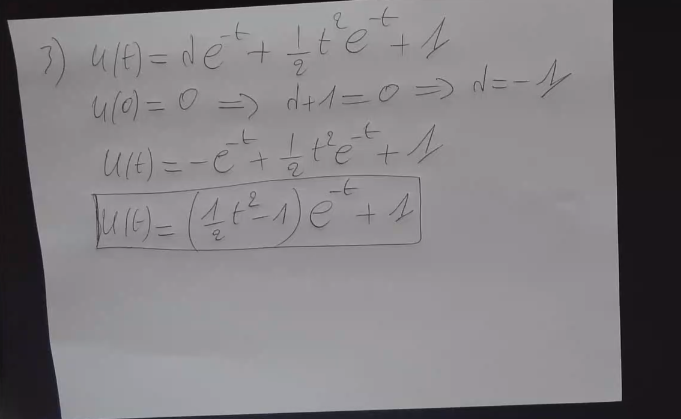 3) u(t) = de^{-t} + \frac{1}{2} t^2 e^{-t} + 1
u(0) = 0 => d+1 = 0 => d = -1
u(t) = -e^{-t} + \frac{1}{2} t^2 e^{-t} + 1
u(t) = (\frac{1}{2} t^2 - 1) e^{-t} + 1